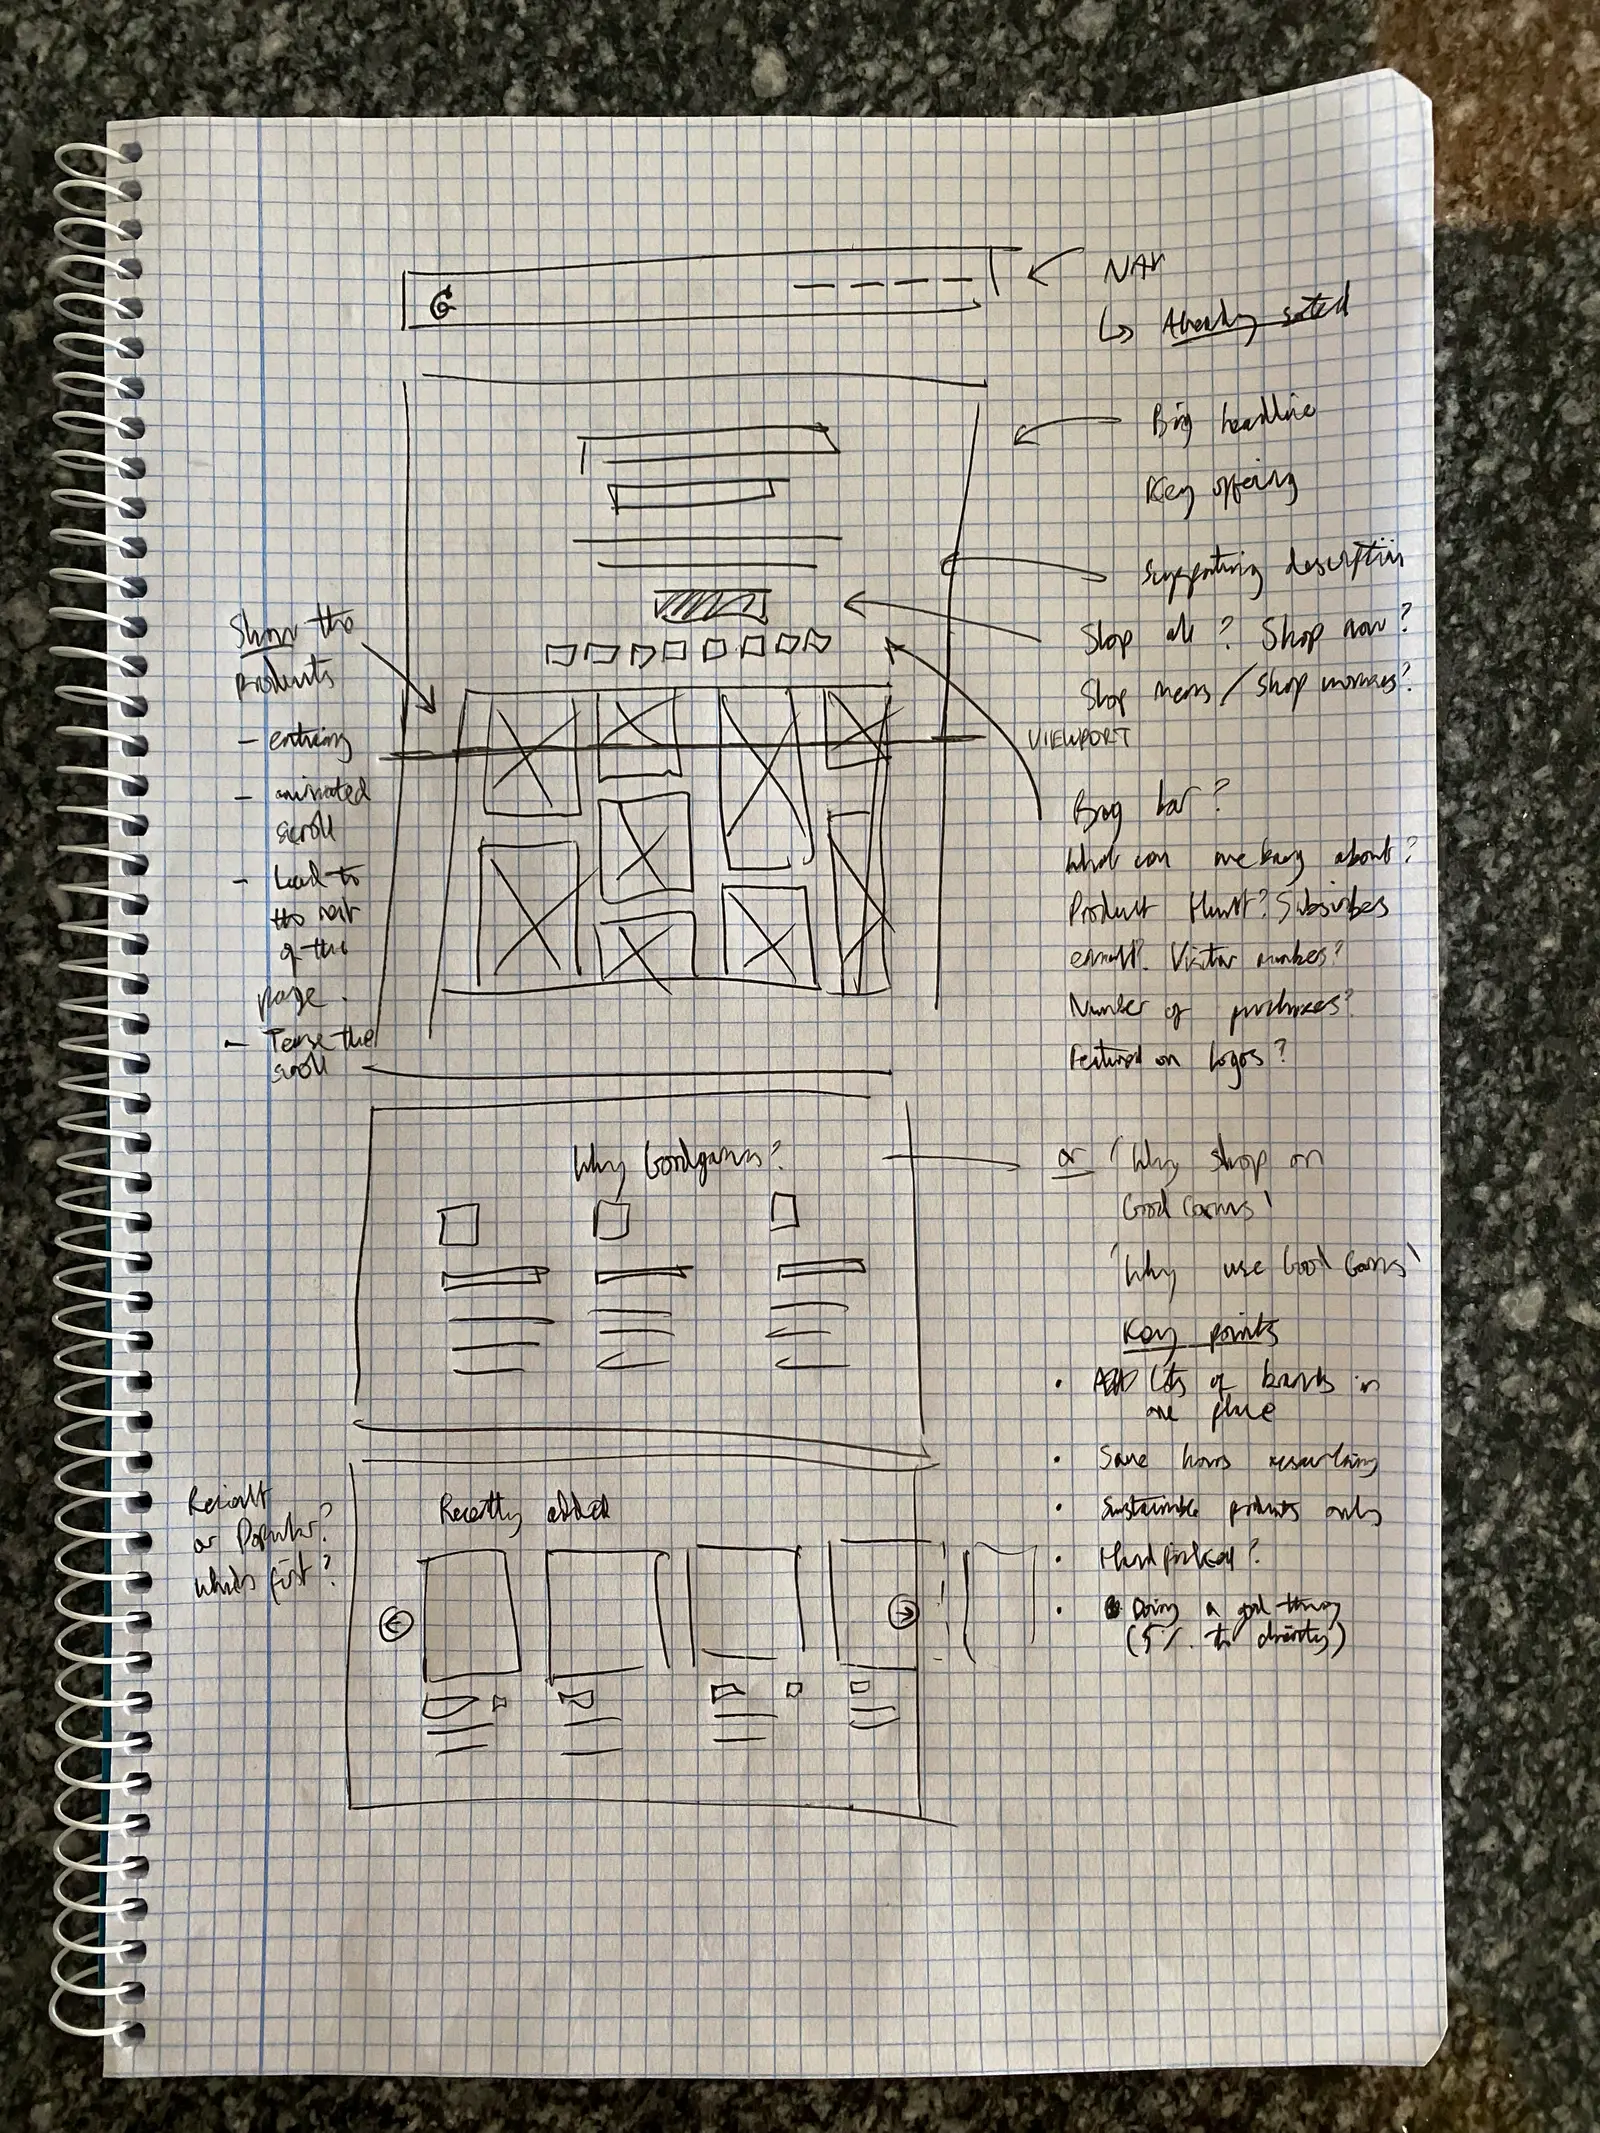 G
NAV
↳ Already sorted
Big headline
Key offering
Supporting description
Shop all? Shop now?
Shop mens / Shop womens?
VIEWPORT
Show the
products
- enticing
- animated
scroll
- Lead to
the rest
of the
page.
- Tease the
scroll
Brag bar?
What can we brag about?
Product Hunt? Subscribers
email? Visitor numbers?
Number of purchases?
Featured on logos?
Why Goodgarms?
or 'Why shop on
Good Garms'
'Why use Good Garms'
Key points
• Lots of brands in
one place
• Save hours researching
• Sustainable products only
• Hand picked?
• Doing a good thing
(5% to charity)
Recent
or Popular?
which first?
Recently added